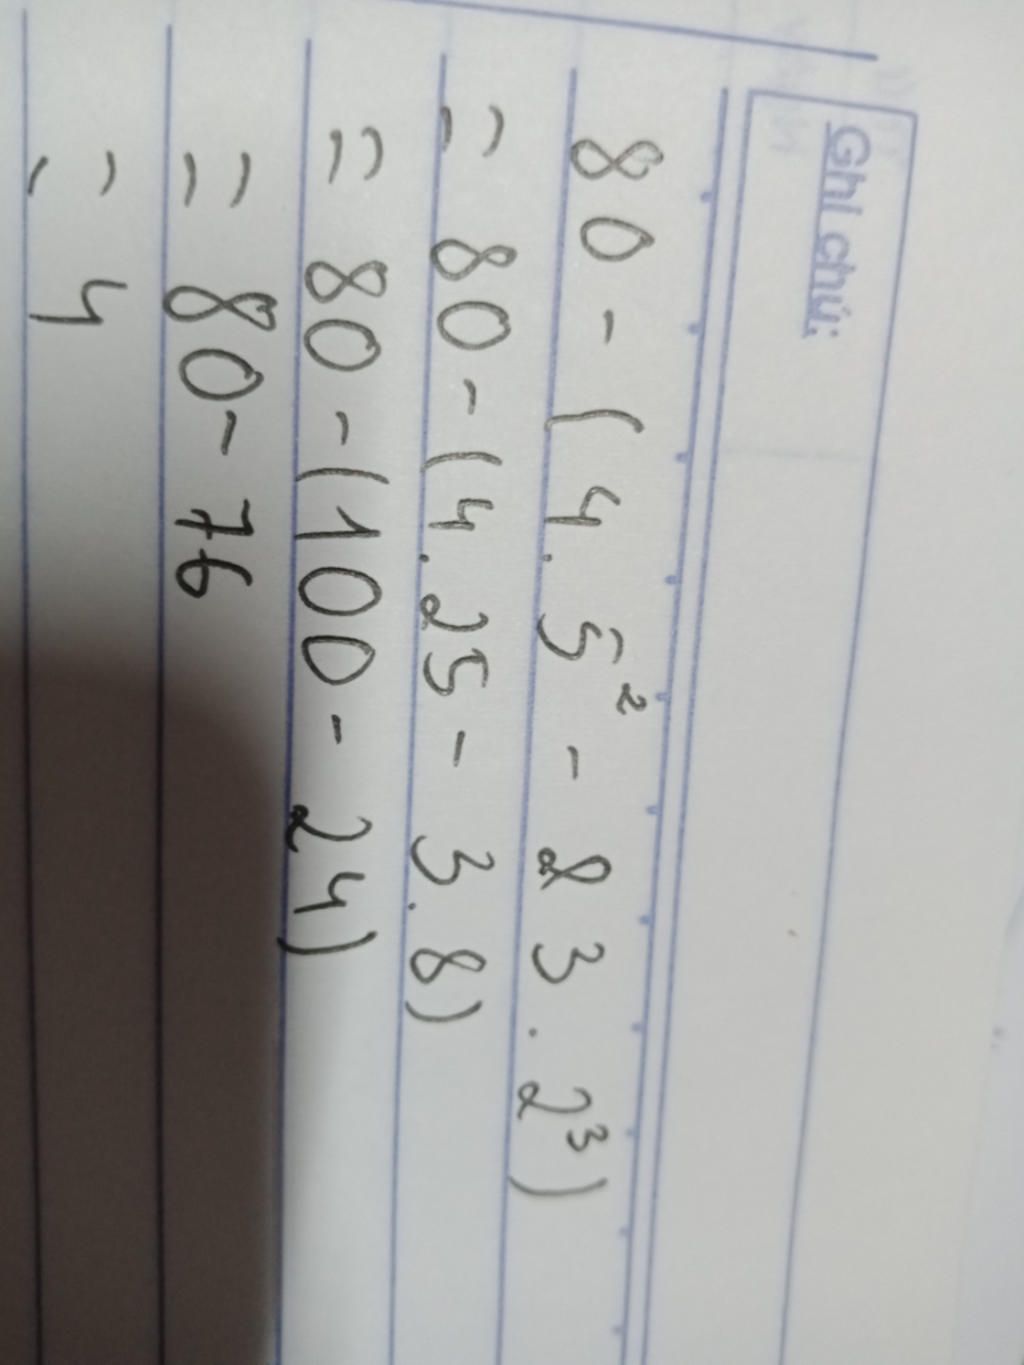 Ghi chú:
80 - (4. 5² - 8 3 . 2³)
= 80 - (4. 25 - 3. 8)
= 80 - (100 - 24)
= 80 - 76
= 4